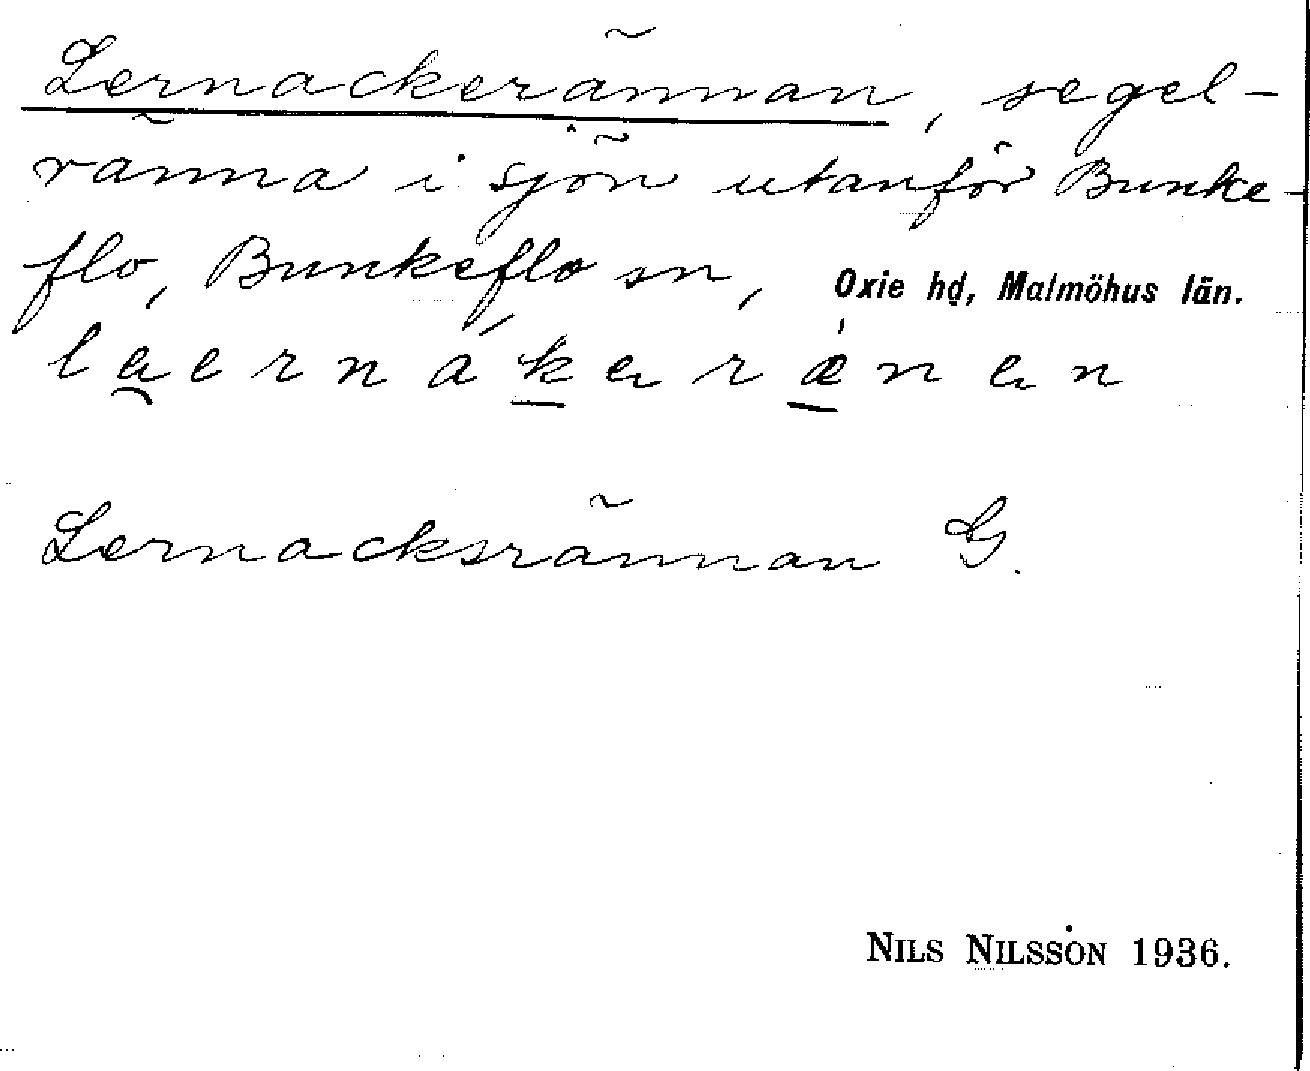 Lernackerännan, segel-
ränna i sjön utanför Bunke-
flo, Bunkeflo sn, Oxie hd, Malmöhus län.
Lernacksrännan G.
NILS NILSSON 1936.